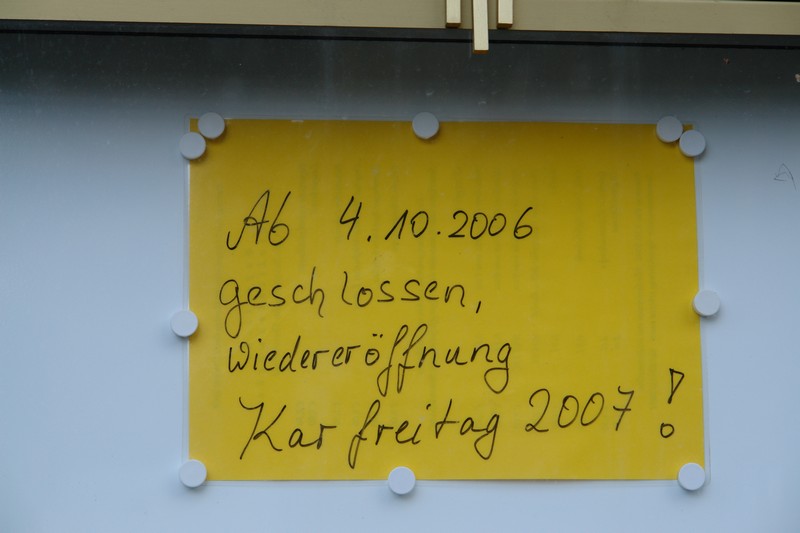 Ab 4.10.2006
geschlossen,
Wiedereröffnung
Karfreitag 2007!